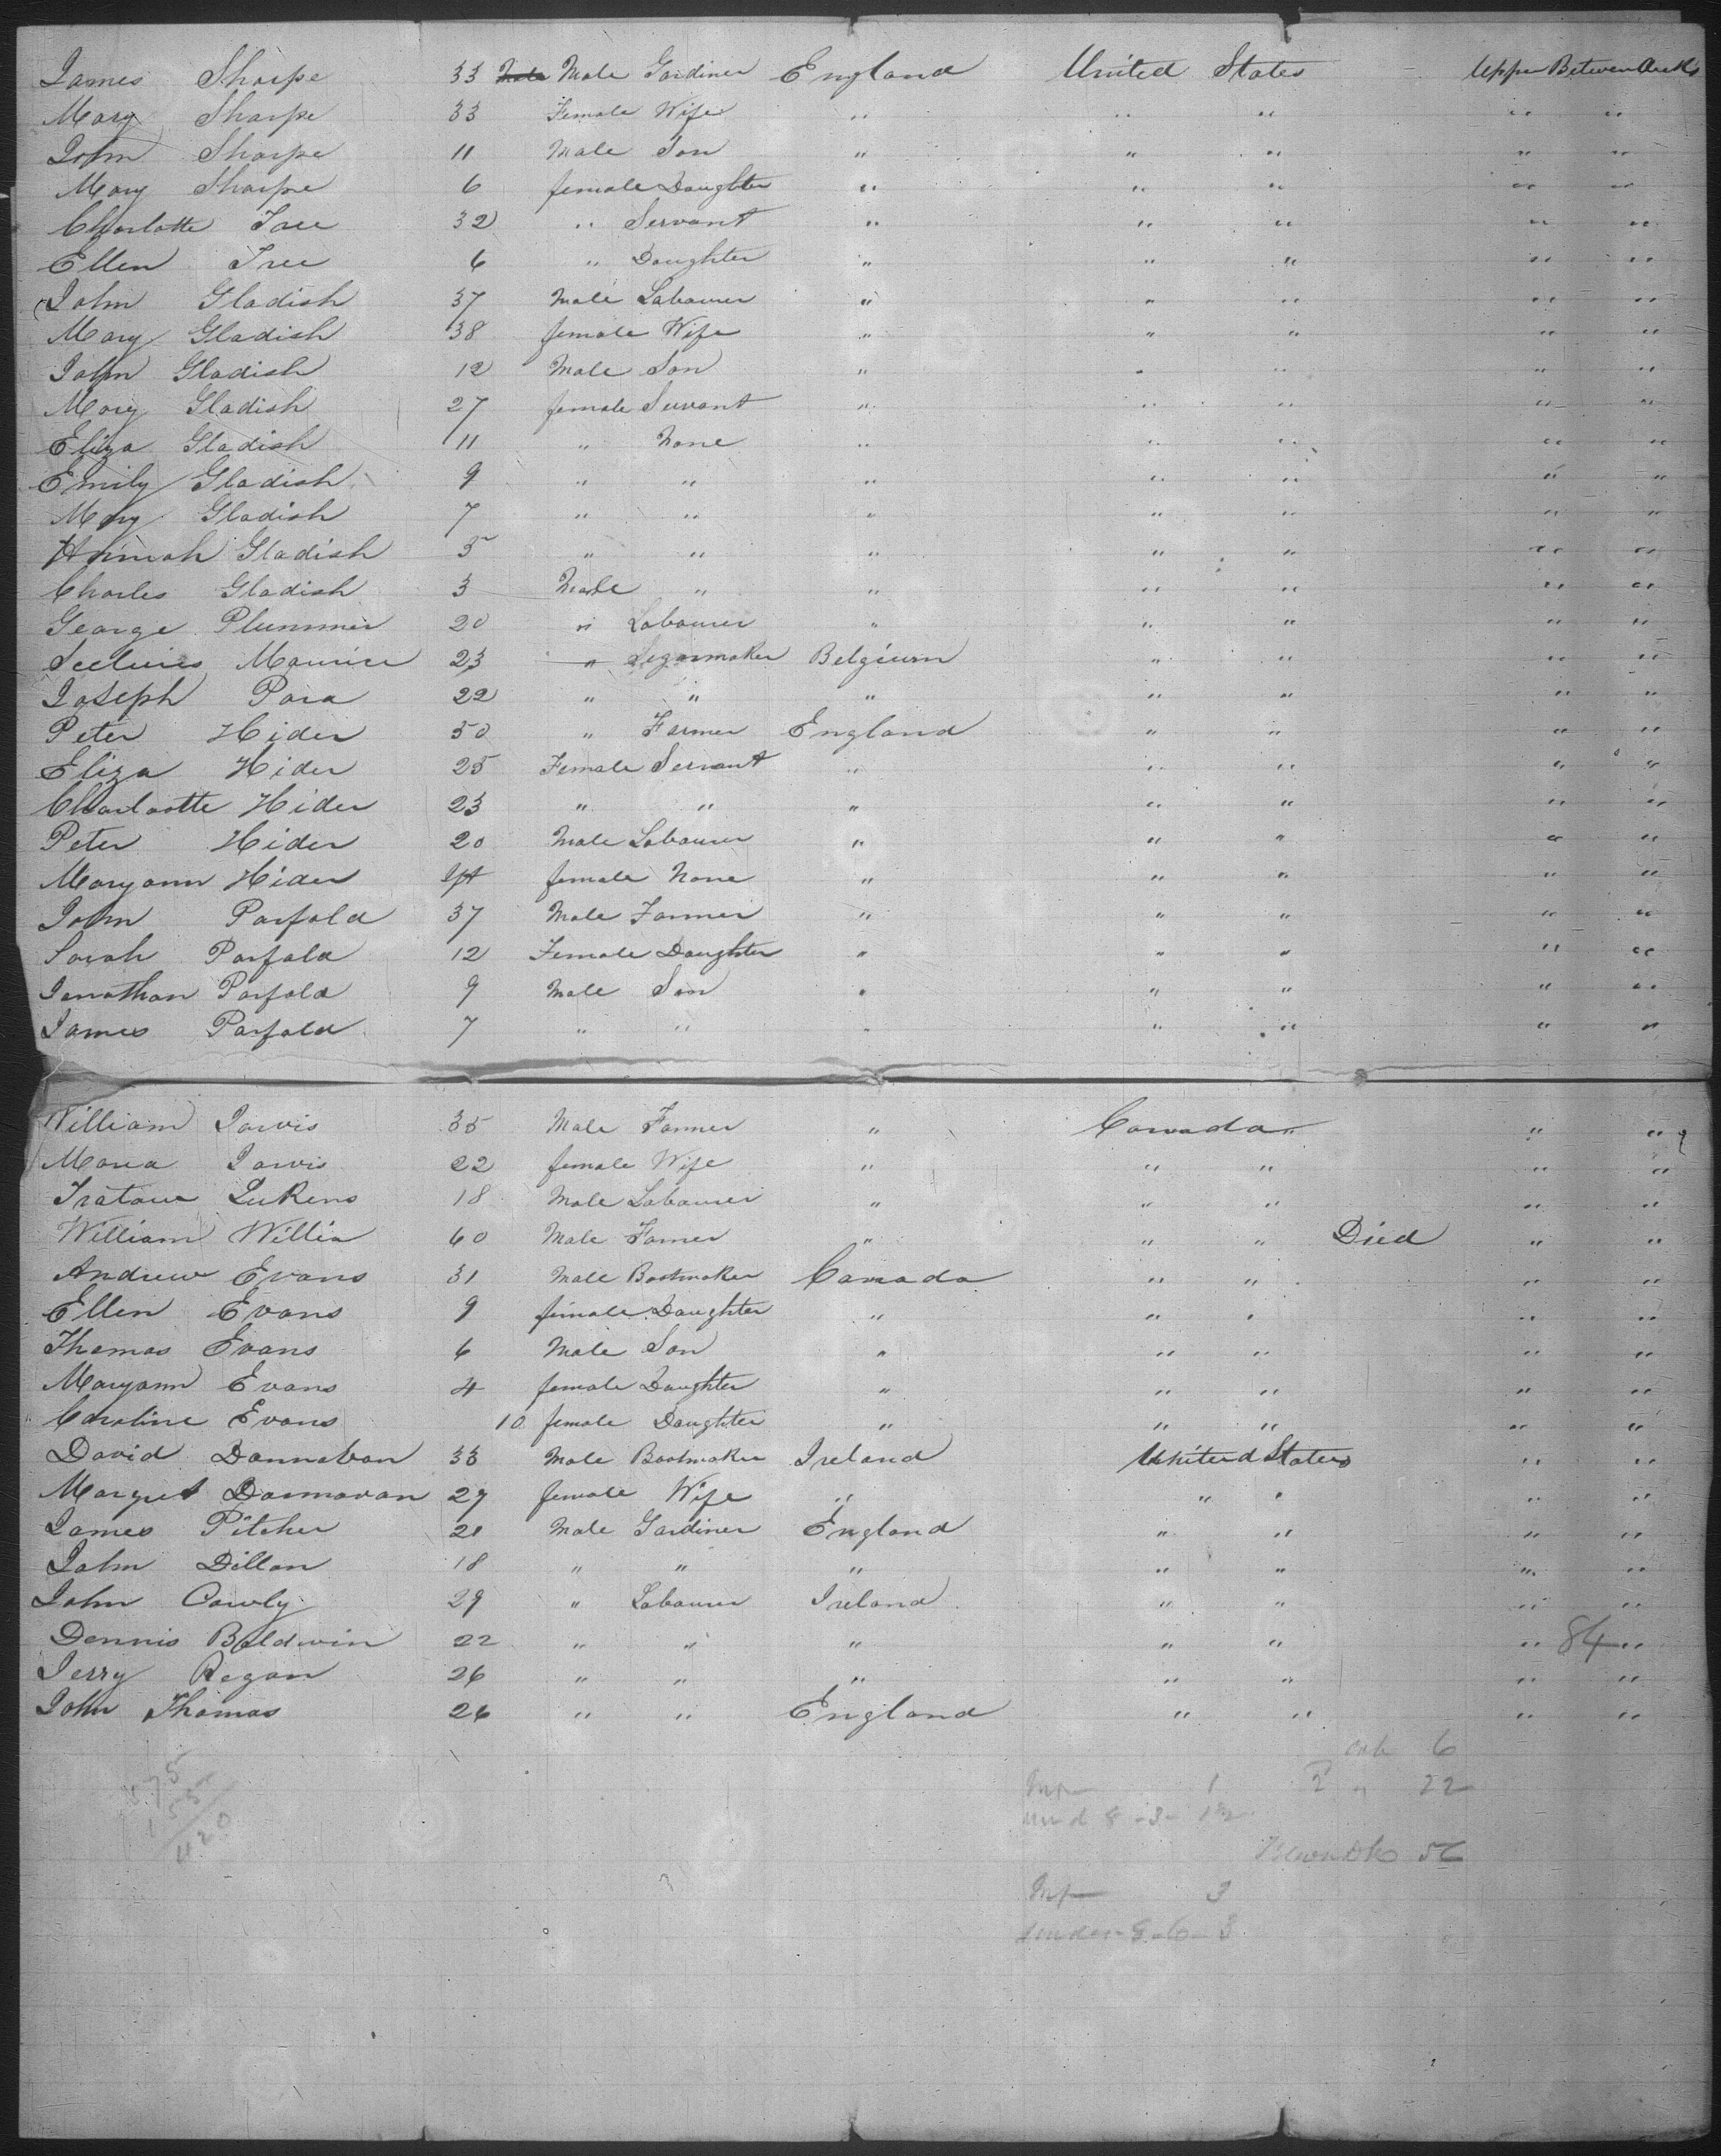 James Sharpe 33 Male Gardiner England United States Upper Between Decks
Mary Sharpe 33 Female Wife " " " " "
John Sharpe 11 Male Son " " " " "
Mary Sharpe 6 female Daughter " " " " "
Charlotte Tree 32 " Servant " " " " "
Ellen Tree 6 " Daughter " " " " "
John Gladish 37 Male Labourer " " " " "
Mary Gladish 38 female Wife " " " " "
John Gladish 12 Male Son " " " " "
Mary Gladish 27 female Servant " " " " "
Eliza Gladish 11 " None " " " " "
Emily Gladish 9 " " " " " " "
Mary Gladish 7 " " " " " " "
Hannah Gladish 5 " " " " " " "
Charles Gladish 3 Male " " " " " "
George Plummer 20 " Labourer " " " " "
Maurice 23 " Segarmaker Belgium " " " "
Joseph Para 22 " " " " " " "
Peter Hider 50 " Farmer England " " " "
Eliza Hider 25 Female Servant " " " " "
Charlootte Hider 23 " " " " " " "
Peter Hider 20 Male Labourer " " " " "
Maryann Hider female None " " " " "
John Parfold 37 Male Farmer " " " " "
Sarah Parfold 12 Female Daughter " " " " "
Jonathan Parfold 9 Male Son " " " " "
James Parfold 7 " " " " " " "
William Jarvis 35 Male Farmer " Canada " " "
Maria Jarvis 22 female Wife " " " " "
LuKens 18 Male Labourer " " " " "
William Willis 60 Male Farmer " " " Died " "
Andrew Evans 31 Male Bootmaker Canada " " " "
Ellen Evans 9 female Daughter " " " " "
Thomas Evans 6 Male Son " " " " "
Maryann Evans 4 female Daughter " " " " "
Caroline Evans 10 female Daughter " " " " "
David Dannavan 33 Male Bootmaker Ireland United States " "
Margret Dannavan 27 female Wife " " " " "
James Pitcher 21 Male Gardiner England " " " "
John Dillon 18 " " " " " " "
John Cowly 29 " Labourer Ireland " " " "
Dennis Baldwin 22 " " " " " " 84 "
Jerry Regan 26 " " " " " " "
John Thomas 26 " " England " " " "
6
575 1 2 " 22
155 8-3-
420
56
3
8-6-3